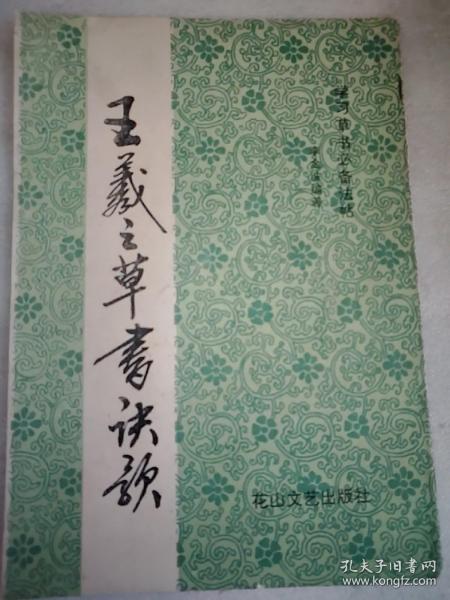 王羲之草书诀歌
学习草书必备法帖
编著
花山文艺出版社
孔夫子旧书网
www.kongfz.com